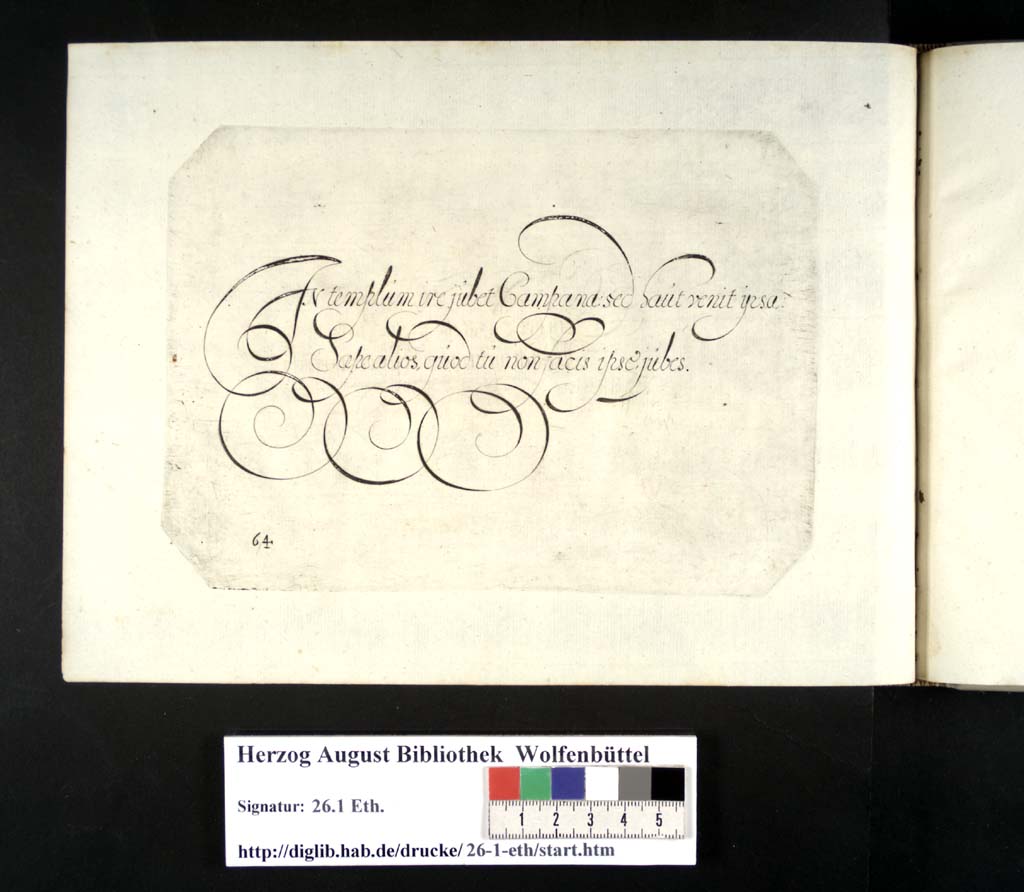 IN templúm ire júbet Campana, sed haút venit ipsa:
Sæpe alios, qúod tú non facis ipse, júbes.
64
Herzog August Bibliothek Wolfenbüttel
Signatur: 26.1 Eth.
1 2 3 4 5
http://diglib.hab.de/drucke/ 26-1-eth/start.htm